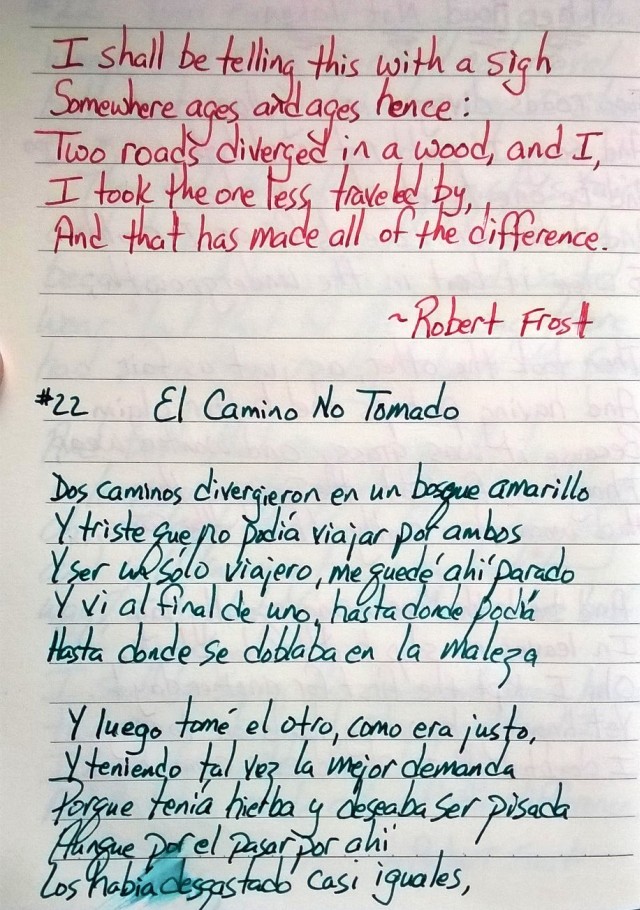 I shall be telling this with a sigh
Somewhere ages and ages hence:
Two roads diverged in a wood, and I,
I took the one less traveled by,
And that has made all of the difference.
~Robert Frost
#22 El Camino No Tomado
Dos caminos divergieron en un bosque amarillo
Y triste que no podiá viajar por ambos
Y ser un sólo viajero, me quedé ahí parado
Y vi al final de uno, hasta donde podiá
Hasta donde se doblaba en la maleza
Y luego tomé el otro, como era justo,
Y teniendo tal vez la mejor demanda
Porque teniá hierba y deseaba ser pisada
Aunque por el pasar por ahí
Los habiá desgastado casi iguales,